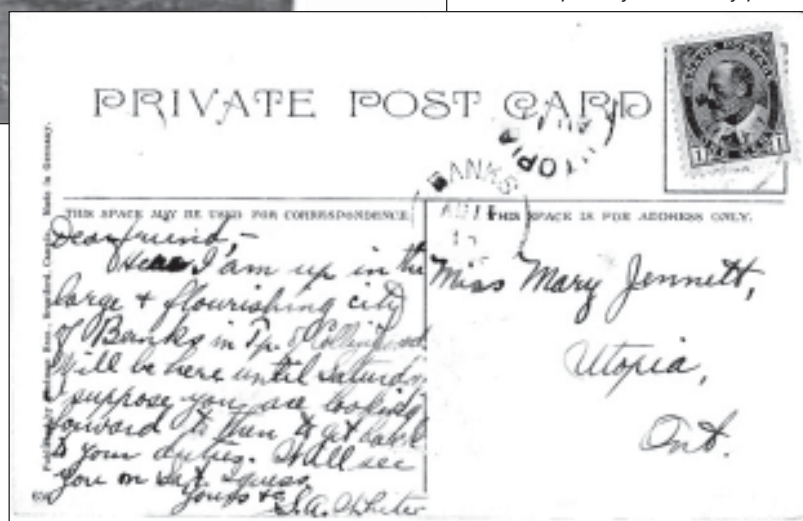 PRIVATE POST CARD
CANADA POSTAGE
1 1
UTOPIA
BANKS
AU
THIS SPACE MAY BE USED FOR CORRESPONDENCE.
THIS SPACE IS FOR ADDRESS ONLY.
Made in Germany.
Dear friend,-
Here I'am up in the
large & flourishing city
of Banks in Tp. of Collingwood
Will be here until Saturday
I suppose you are looking
forward to then to get back
to your duties. Will see
you on Sat. I guess
Yours &c
S.A.
Miss Mary Jennett,
Utopia,
Ont.